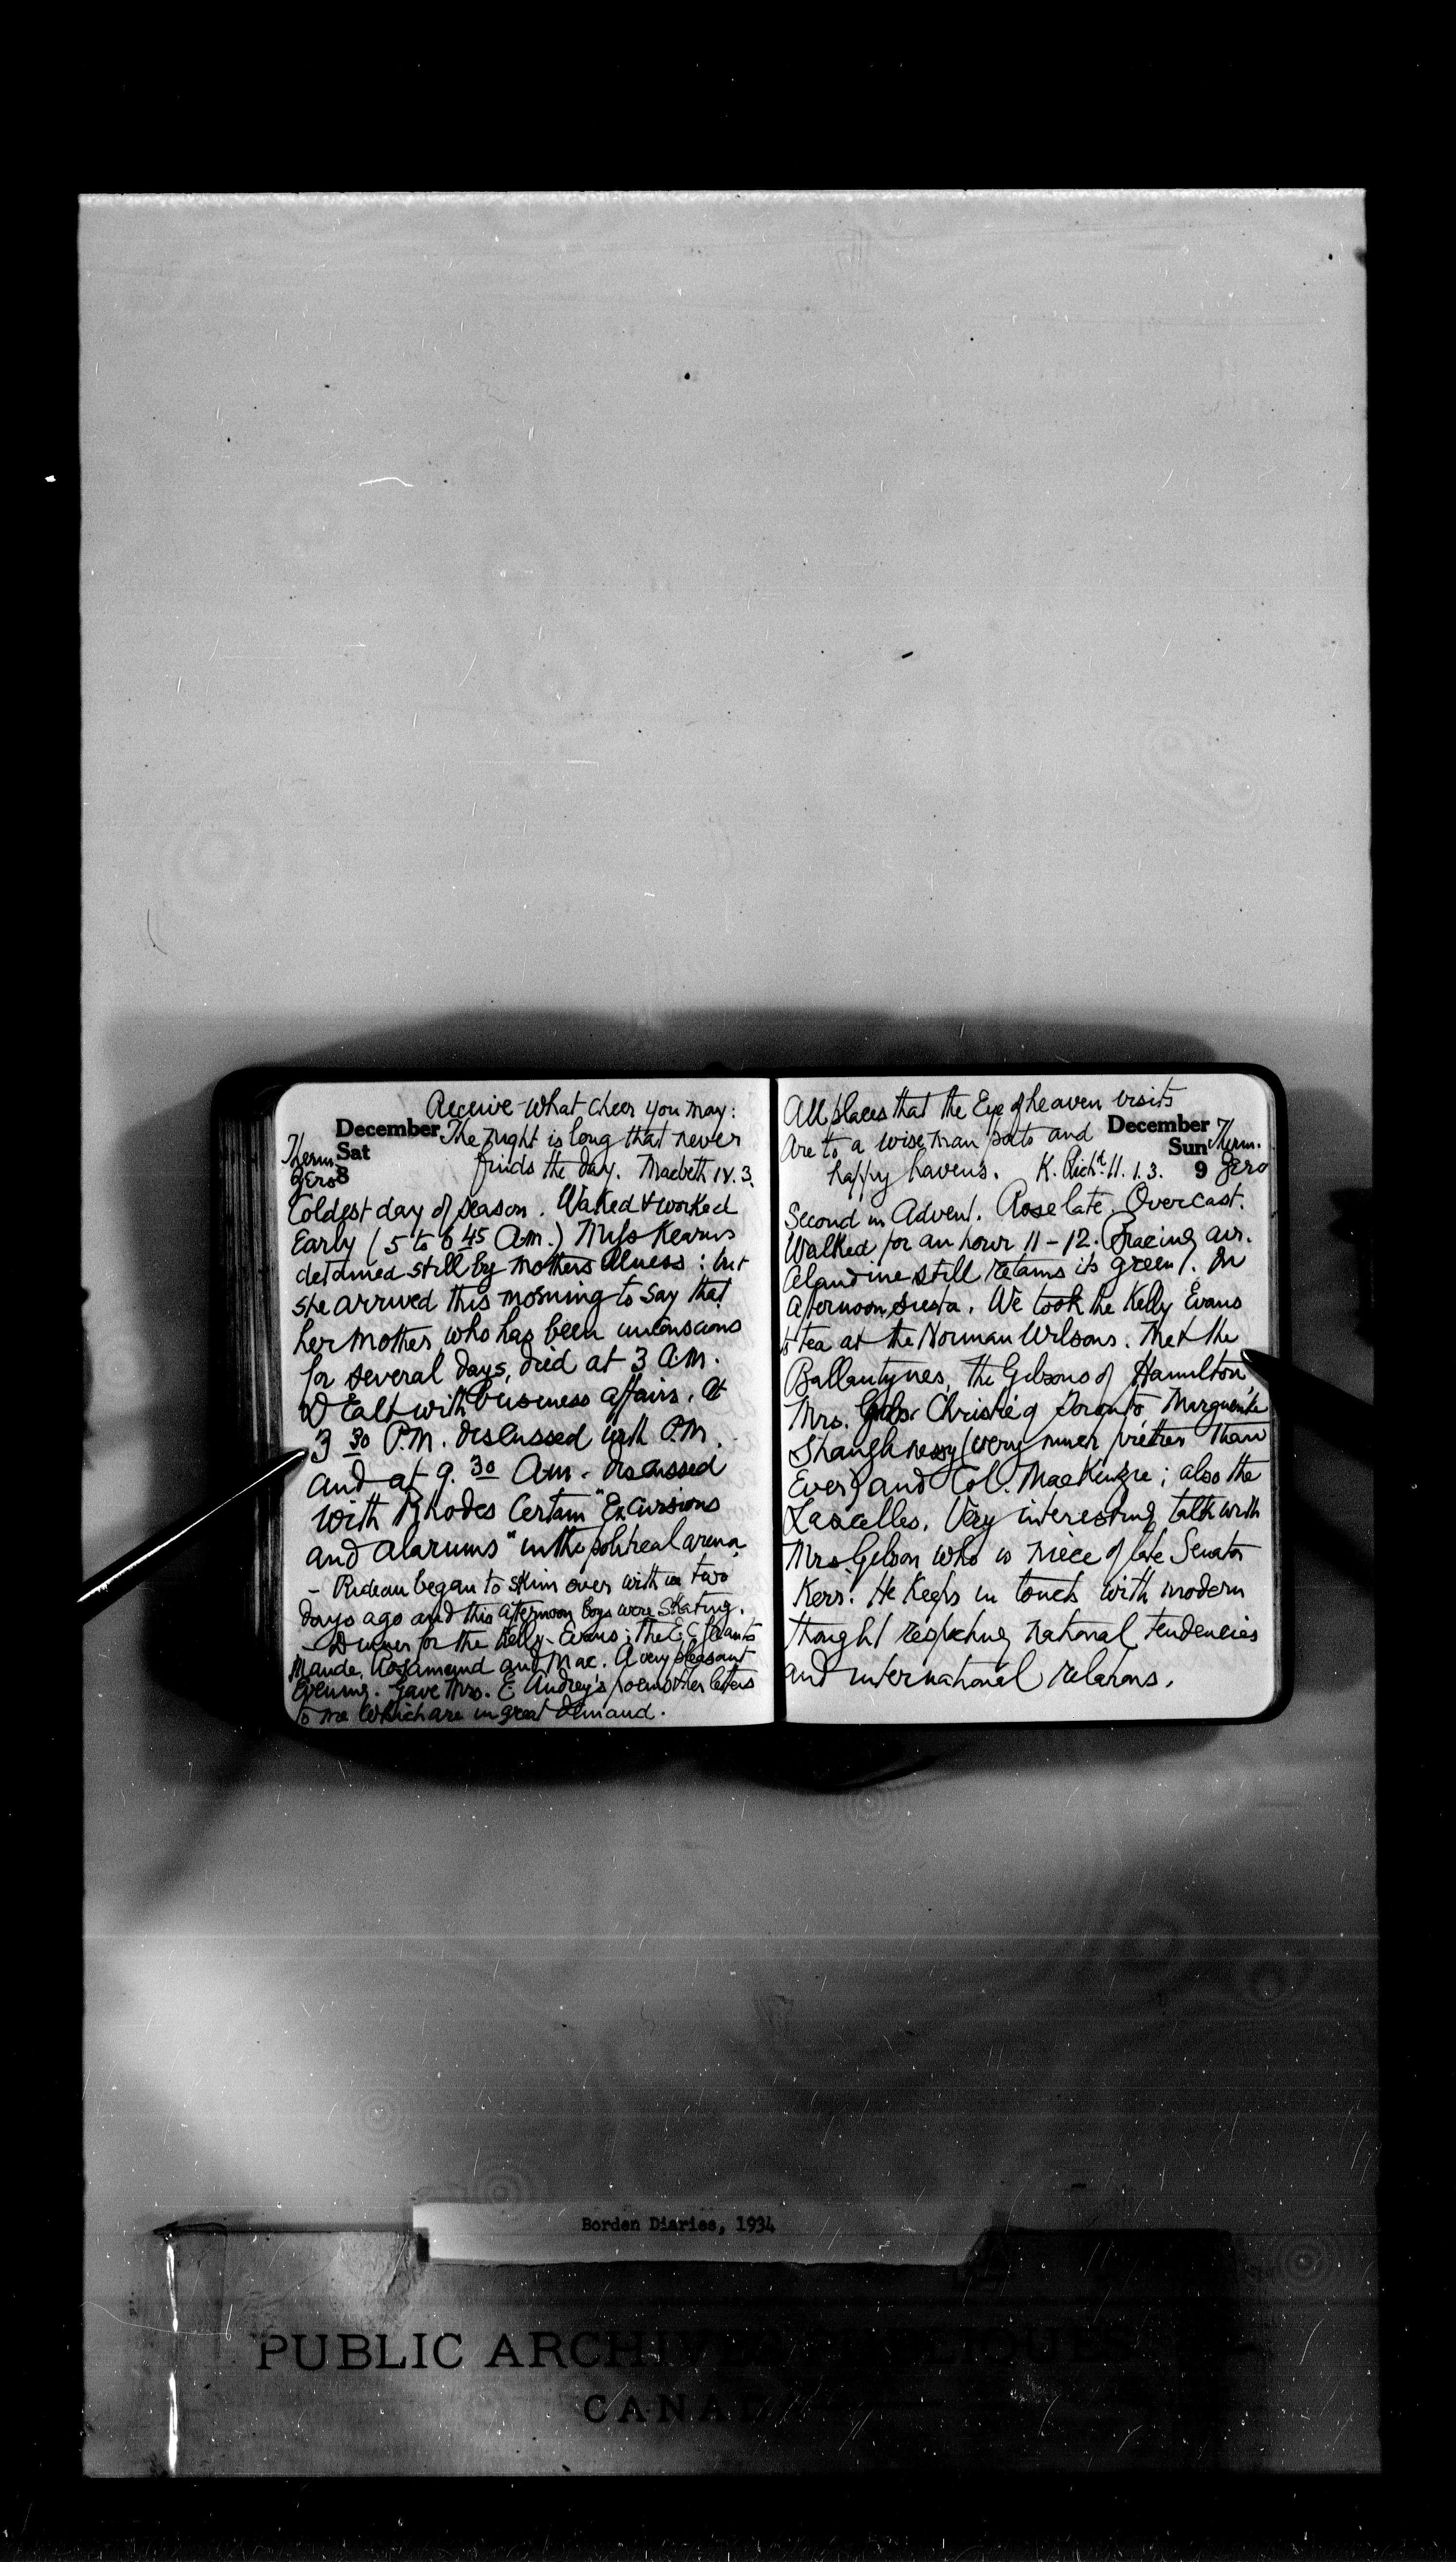 Receive what cheer you may:
December The night is long that never
Therm. Sat finds the day. Macbeth IV. 3.
Zero 8
Coldest day of season. Waked & worked
Early (5 to 6 45 A.m.) Miss Kearns
detained still by mothers illness; but
she arrived this morning to say that
her mother, who has been unconscious
for several days, died at 3 a.m.
Dealt with business affairs. At
3 30 P.M. discussed with P.M.
and at 9.30 A.m. discussed
with Rhodes Certain "Excursions
and alarums" in the political arena
- Rideau began to skim over with ice two
days ago and this afternoon boys were skating.
- Dinner for the Kelly-Evans; the E.C. Grants
Maude, Rosamond and Mac. A very pleasant
Evening. Gave Mrs. E Audrey's poems & her letters
to me which are in great demand.
All places that the Eye of heaven visits
Are to a wise man ports and December Therm.
happy havens. K. Richd. II. 1. 3. Sun 9 Zero
Second in Advent. Rose late. Overcast.
Walked for an hour 11-12. Bracing air.
still retains its green. In
afternoon siesta. We took the Kelly Evans
to tea at the Norman Wilsons. Met the
Ballantynes, the Gibsons of Hamilton,
Mrs. Christie of Toronto, Marguerite
Shaughnessy (very much prettier than
Ever) and Col. MacKenzie; also the
Lascelles. Very interesting talk with
Mrs. Gibson who is niece of late Senator
Kerr. He Keeps in touch with modern
thought respecting national tendencies
and international relations.
Borden Diaries, 1934
PUBLIC ARCHIVES PUBLIQUES
CANADA